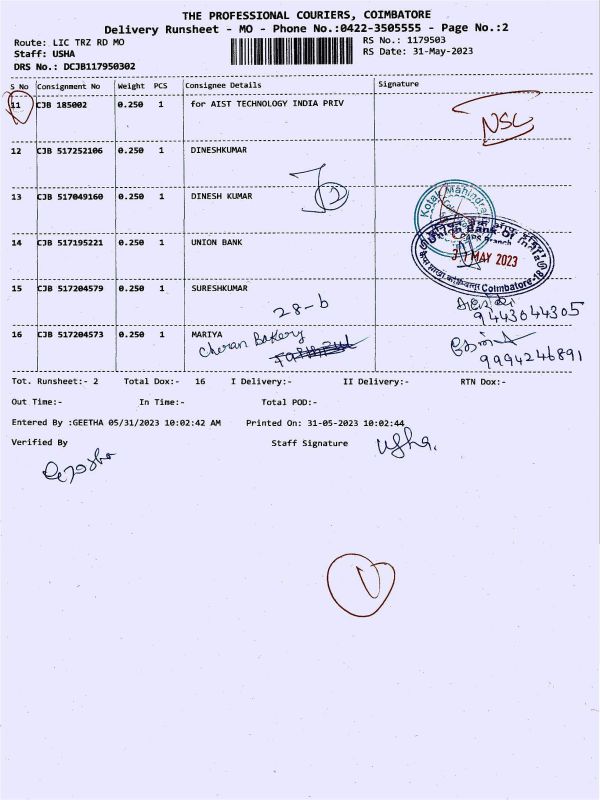 THE PROFESSIONAL COURIERS, COIMBATORE
Delivery Runsheet - MO - Phone No.:0422-3505555 - Page No.:2
Route: LIC TRZ RD MO
RS No.: 1179503
Staff: USHA
RS Date: 31-May-2023
DRS No.: DCJB117950302
S No Consignment No Weight PCS Consignee Details Signature
11 CJB 185002 0.250 1 for AIST TECHNOLOGY INDIA PRIV
NSC
12 CJB 517252106 0.250 1 DINESHKUMAR
2
13 CJB 517049160 0.250 1 DINESH KUMAR
Kotak Mahindra
14 CJB 517195221 0.250 1 UNION BANK
Union Bank Of India
Branch
31 MAY 2023
Coimbatore-18
15 CJB 517204579 0.250 1 SURESHKUMAR
28-b
9443044305
16 CJB 517204573 0.250 1 MARIYA
Cheran Bakery
9994246891
Tot. Runsheet:- 2 Total Dox:- 16 I Delivery:- II Delivery:- RTN Dox:-
Out Time:- In Time:- Total POD:-
Entered By :GEETHA 05/31/2023 10:02:42 AM Printed On: 31-05-2023 10:02:44
Verified By Staff Signature
Usha.